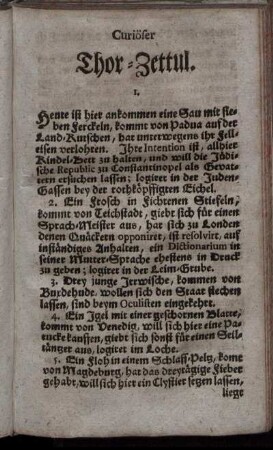 Curiöser
Thor-Zettul.
1.
Heute ist hier ankommen eine Sau mit sie-
ben Ferckeln, kommt von Padua auf der
Land-Kutschen, hat unterwegens ihr Fell-
eisen verlohren. Ihre Intention ist, allhier
Kindel-Bett zu halten, und will die Jüdi-
sche Republic zu Constantinopel als Gevat-
tern ersuchen lassen; logiret in der Juden-
Gassen bey der rothköpffigten Eichel.
2. Ein Frosch in Fichtenen Stiefeln,
kommt von Teichstadt, giebt sich für einen
Sprach-Meister aus, hat sich zu Londen
denen Quäckern opponiret, ist resolvirt, auf
inständiges Anhalten, ein Dictionarium in
seiner Mutter-Sprache ehestens in Druck
zu geben; logiret in der Leim-Grube.
3. Drey junge Irrwische, kommen von
Buxdehude, wollen sich den Staar stechen
lassen, sind beym Oculisten eingekehrt.
4. Ein Igel mit einer geschornen Blatte,
kommt von Venedig, will sich hier eine Pa-
rucke kauffen, giebt sich sonst für einen Seil-
täntzer aus, logiret im Loche.
5. Ein Floh in einem Schlaff-Peltz, komt
von Magdeburg, hat das dreytägige Fieber
gehabt, will sich hier ein Clystier setzen lassen,
liegt